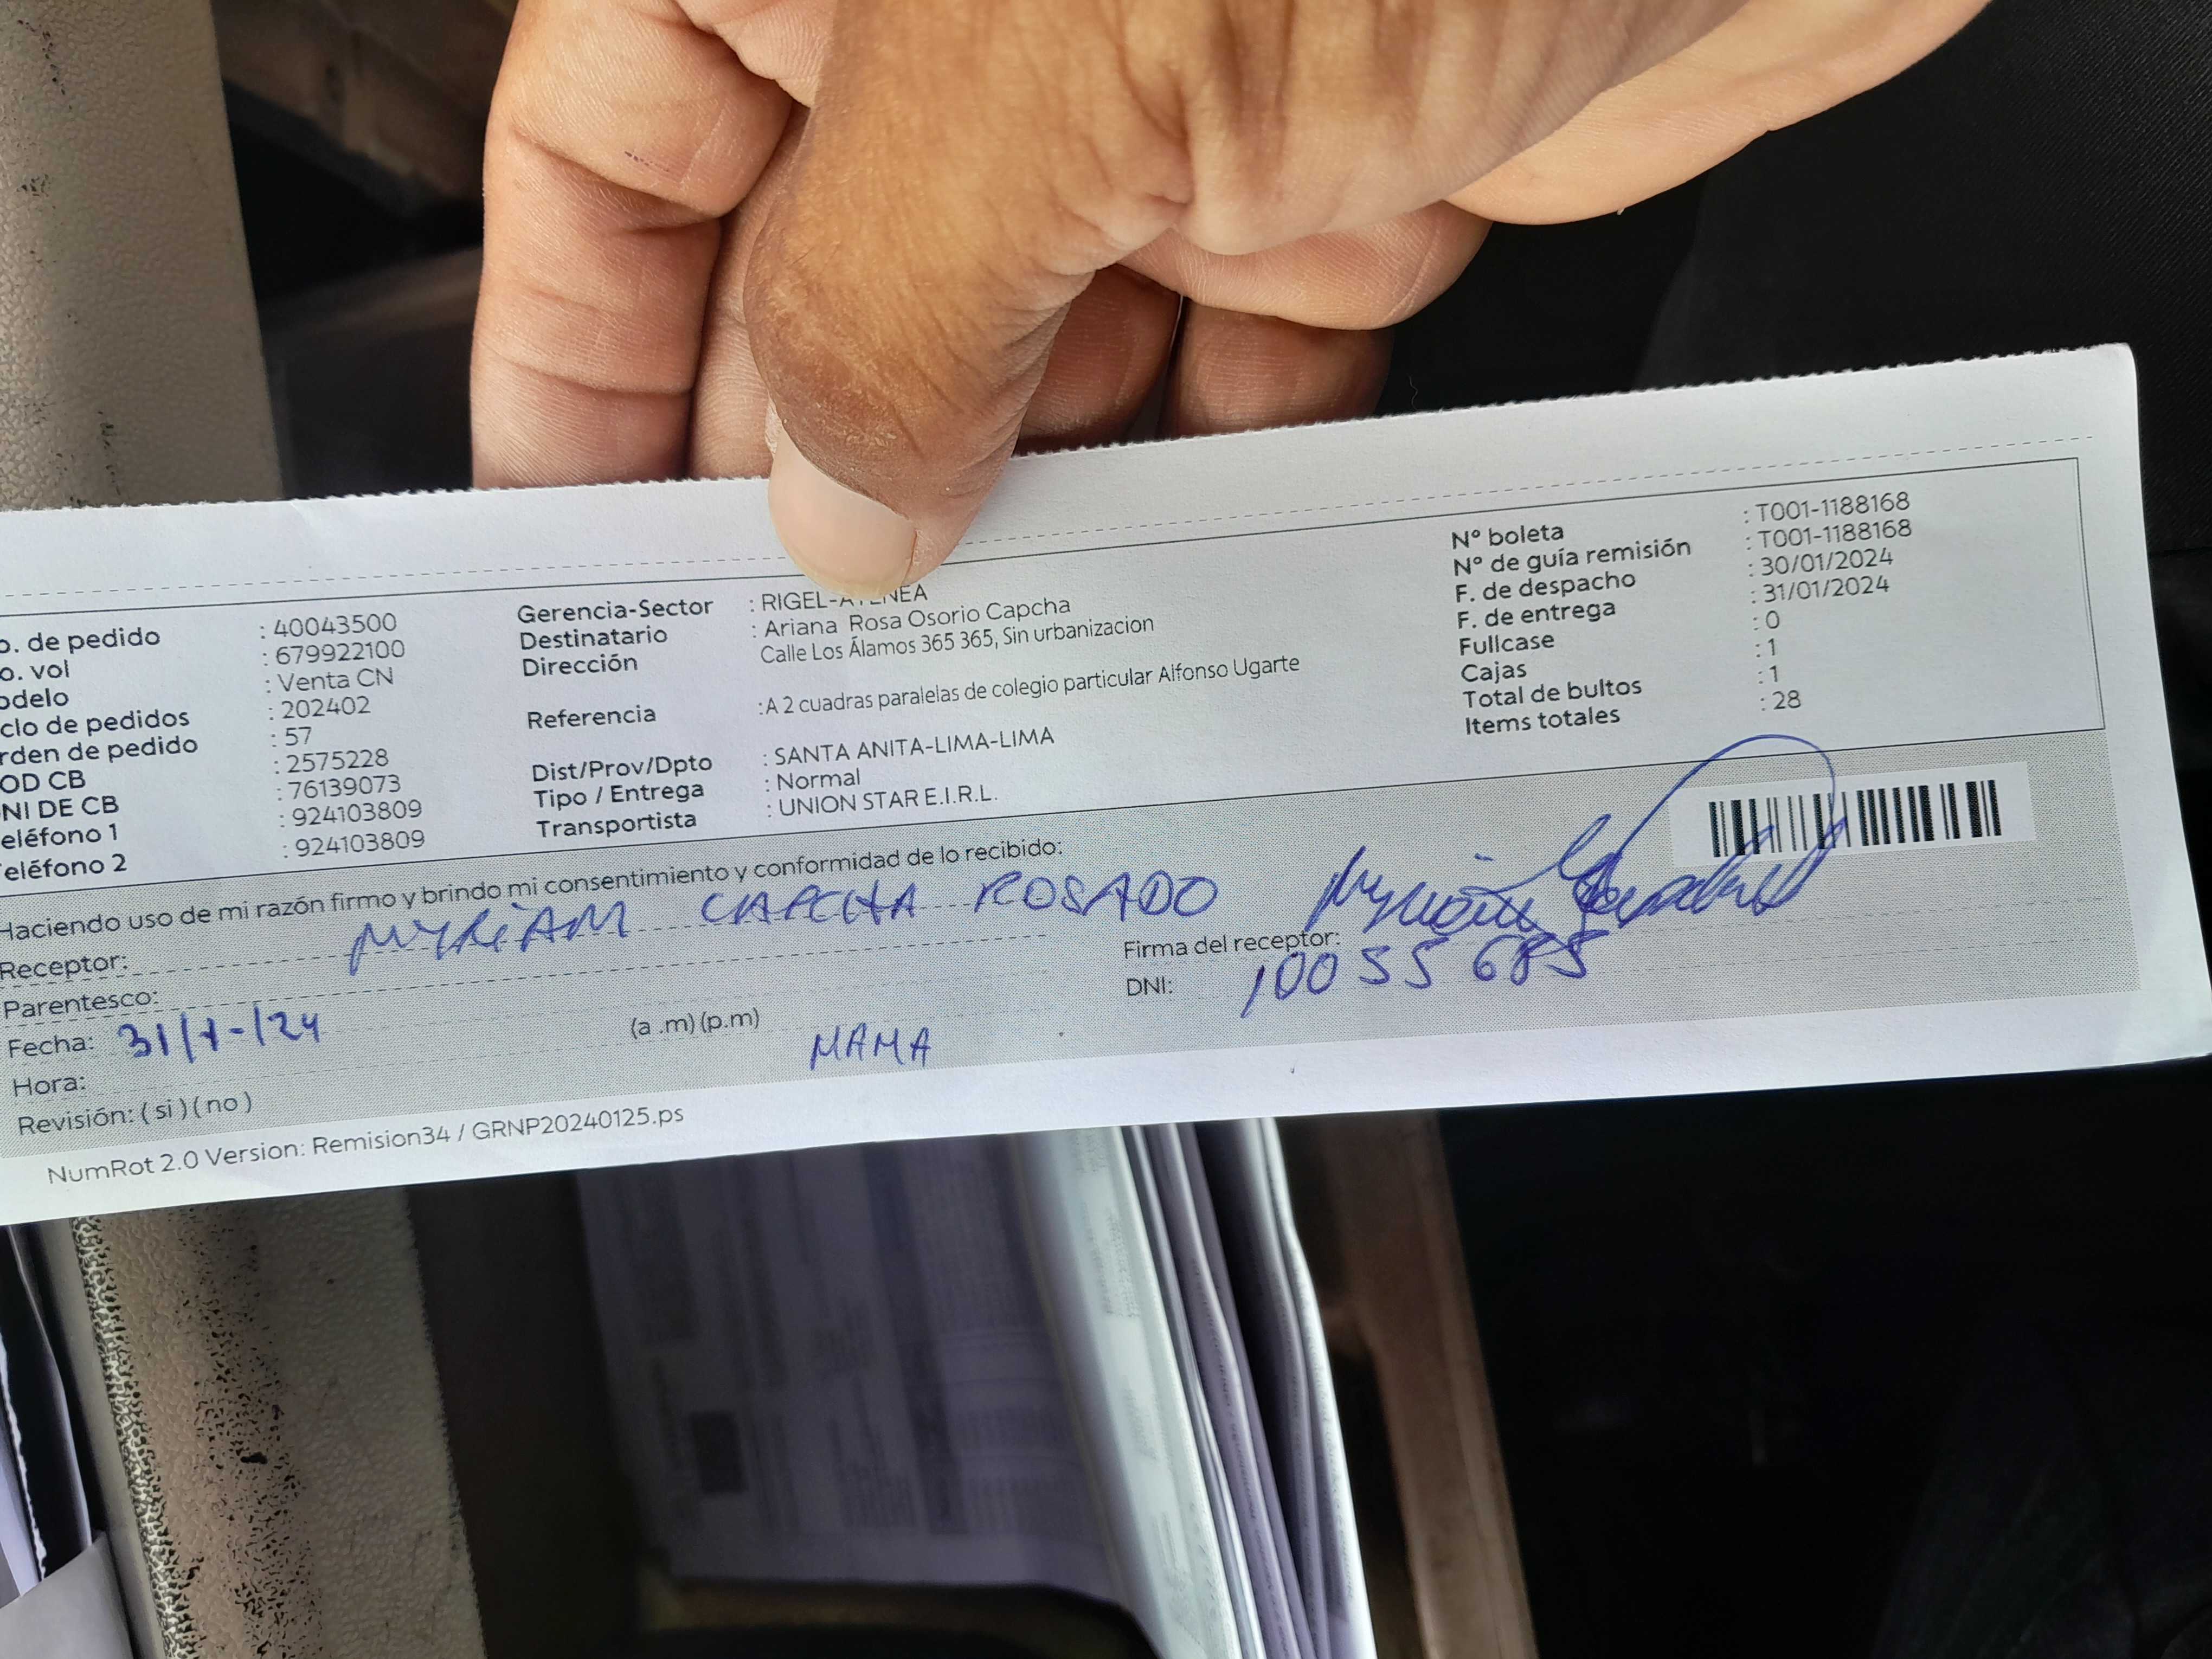 o. de pedido : 40043500
o. vol : 679922100
odelo : Venta CN
clo de pedidos : 202402
rden de pedido : 57
OD CB : 2575228
NI DE CB : 76139073
eléfono 1 : 924103809
eléfono 2 : 924103809
Gerencia-Sector : RIGEL-ATENEA
Destinatario : Ariana Rosa Osorio Capcha
Dirección Calle Los Álamos 365 365, Sin urbanizacion
Referencia :A 2 cuadras paralelas de colegio particular Alfonso Ugarte
Dist/Prov/Dpto : SANTA ANITA-LIMA-LIMA
Tipo / Entrega : Normal
Transportista : UNION STAR E.I.R.L.
Nº boleta : T001-1188168
Nº de guía remisión : T001-1188168
F. de despacho : 30/01/2024
F. de entrega : 31/01/2024
Fullcase : 0
Cajas : 1
Total de bultos : 1
Items totales : 28
Haciendo uso de mi razón firmo y brindo mi consentimiento y conformidad de lo recibido:
Receptor: MYRiAM CAPCHA ROSADO
Firma del receptor:
Parentesco:
DNI: 10055685
Fecha: 31/1-/24
Hora: (a .m) (p.m)
MAMA
Revisión: ( si ) ( no )
NumRot 2.0 Version: Remision34 / GRNP20240125.ps